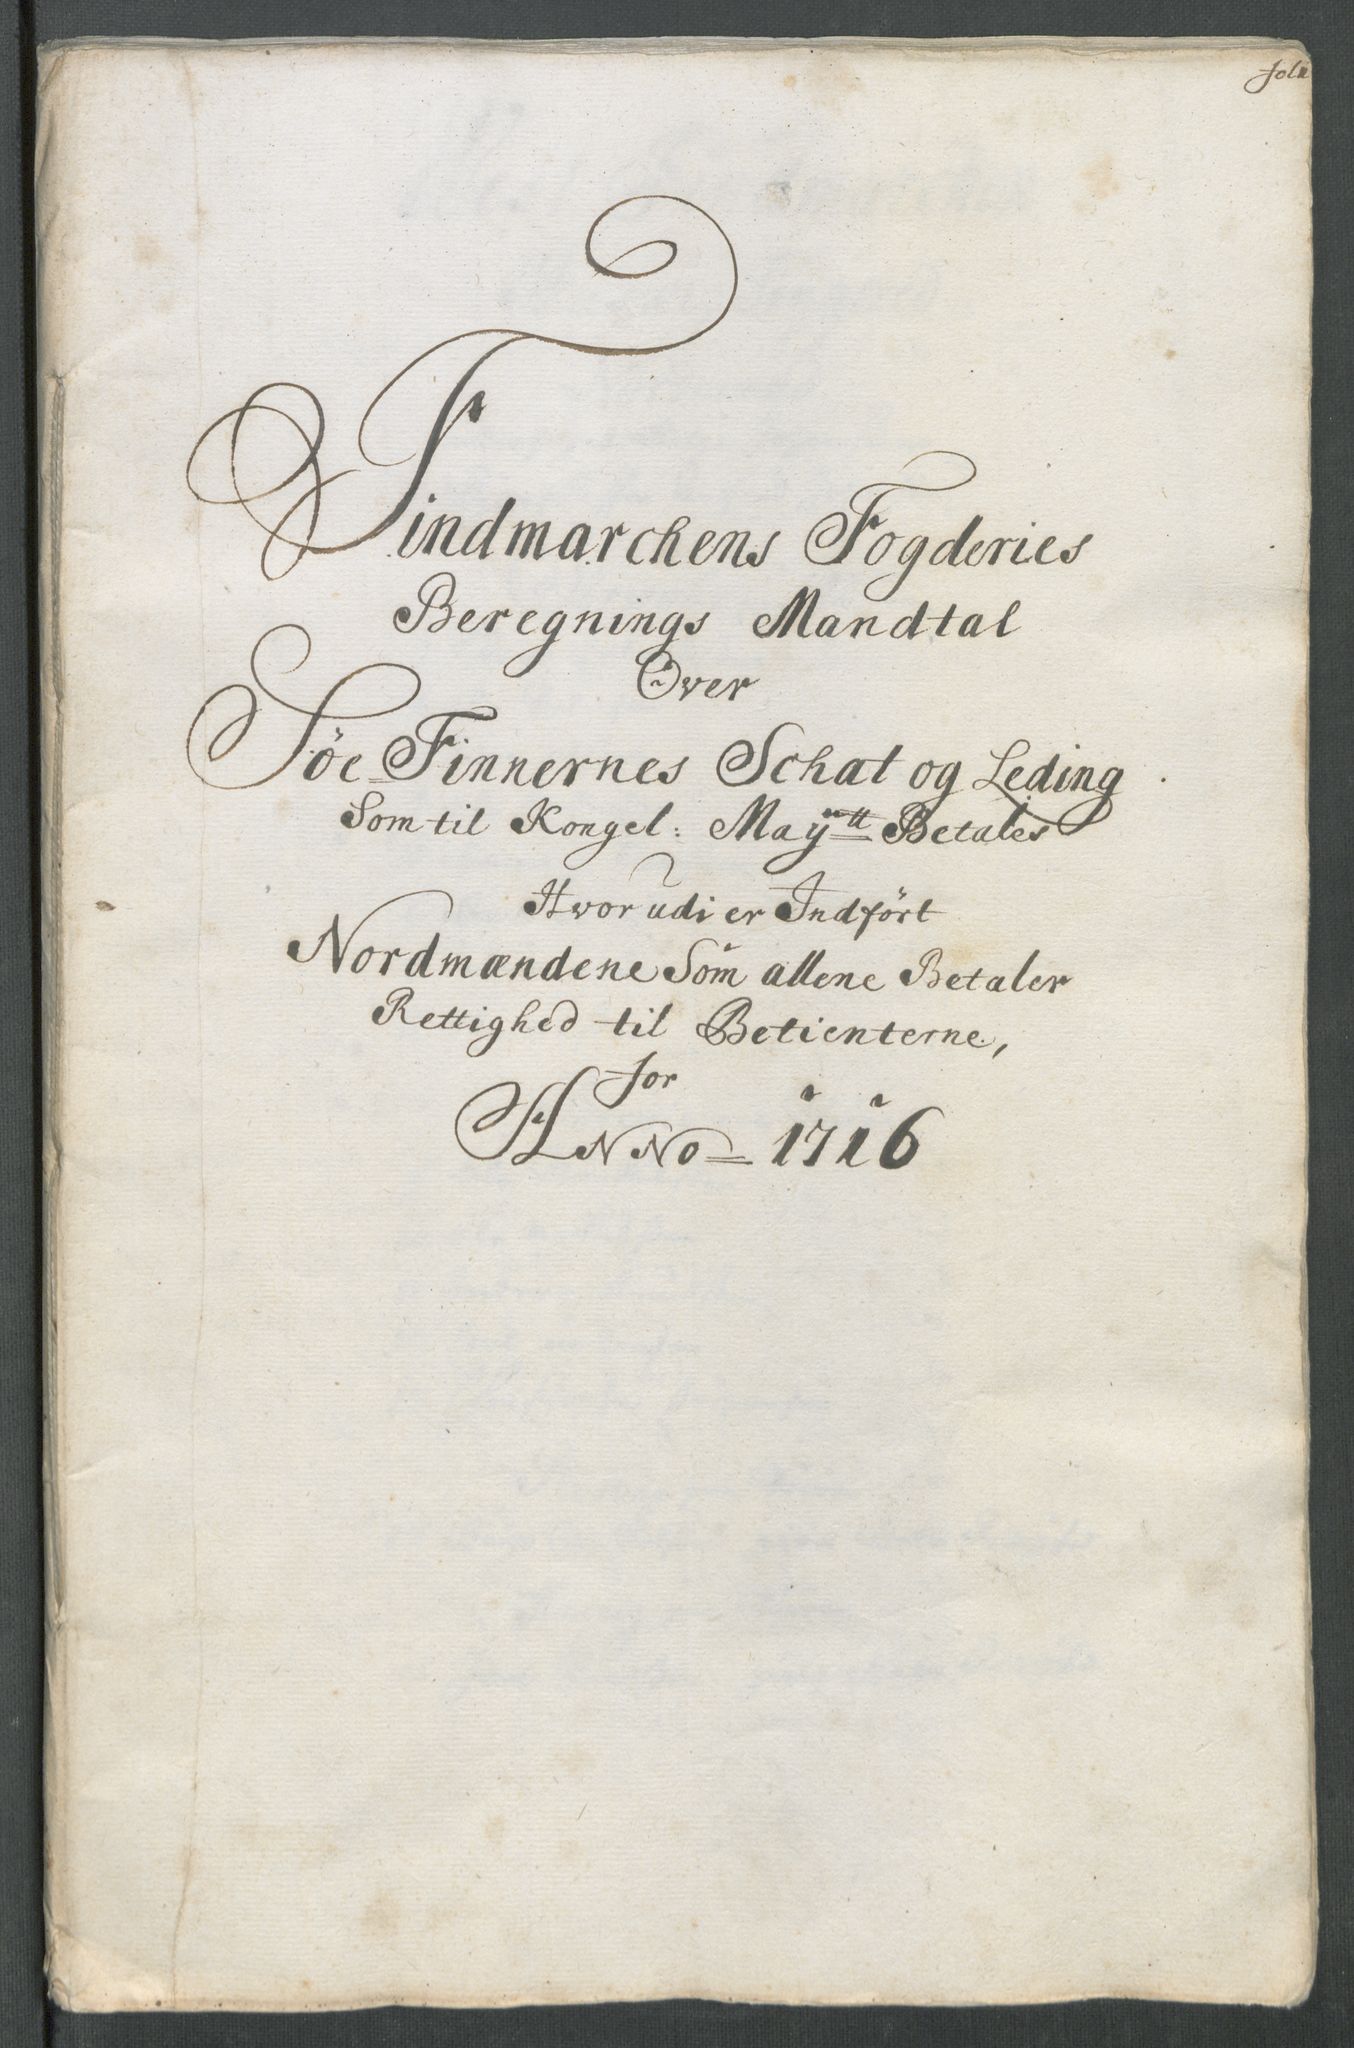 fol:
Findmarchens Fogderies
Beregnings Mandtal
Over
Söe-Finnernes Schat og Leding
Som til Kongel: Mayᵗᵗ Betales
Hvor udi er Indfört
Nordmændene Som allene Betaler
Rettighed til Betienterne,
for
ANNO 1716